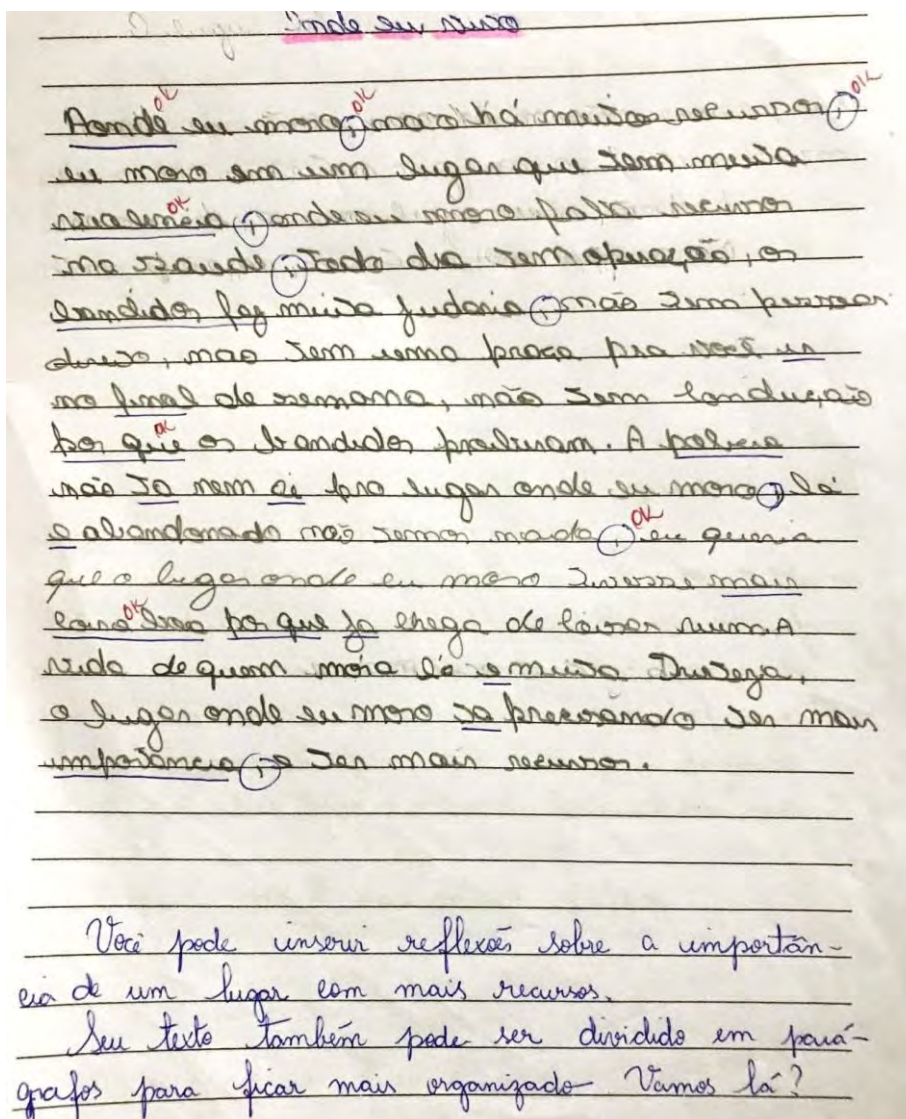 Onde eu vivo
Aonde eu moro, não há muitos recursos,
eu moro em um lugar que tem muita
violencia, onde eu moro falta recurso
na saude, todo dia tem operação, os
bandidos faz muita judaria, não tem passeas
direito, nao tem uma praça pra você ir
no final de semana, não tem condução
por que os bandidos proibiram. A policia
não ta nem ai pro lugar onde eu moro, lá
e abandonado não temos nada, eu queria
que o lugar onde eu moro tivesse mais
por que ja chega de coisas ruim. A
vida de quem mora lá e muita Tristeza,
o lugar onde eu moro ta precisando ter mais
importância, e ter mais recursos.
ok
ok
ok
ok
ok
ok
ok
Você pode inserir reflexões sobre a importân-
cia de um lugar com mais recursos.
Seu texto também pode ser dividido em pará-
grafos para ficar mais organizado Vamos lá?